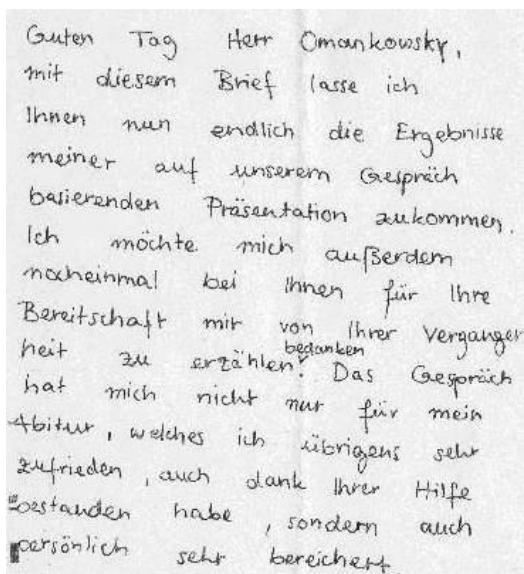 Guten Tag Herr Omankowsky,
mit diesem Brief lasse ich
Ihnen nun endlich die Ergebnisse
meiner auf unserem Gespräch
basierenden Präsentation zukommen.
Ich möchte mich außerdem
nocheinmal bei Ihnen für Ihre
Bereitschaft mir von Ihrer Vergangen
heit zu erzählen bedanken. Das Gespräch
hat mich nicht nur für mein
Abitur, welches ich übrigens sehr
zufrieden, auch dank Ihrer Hilfe
bestanden habe, sondern auch
persönlich sehr bereichert.